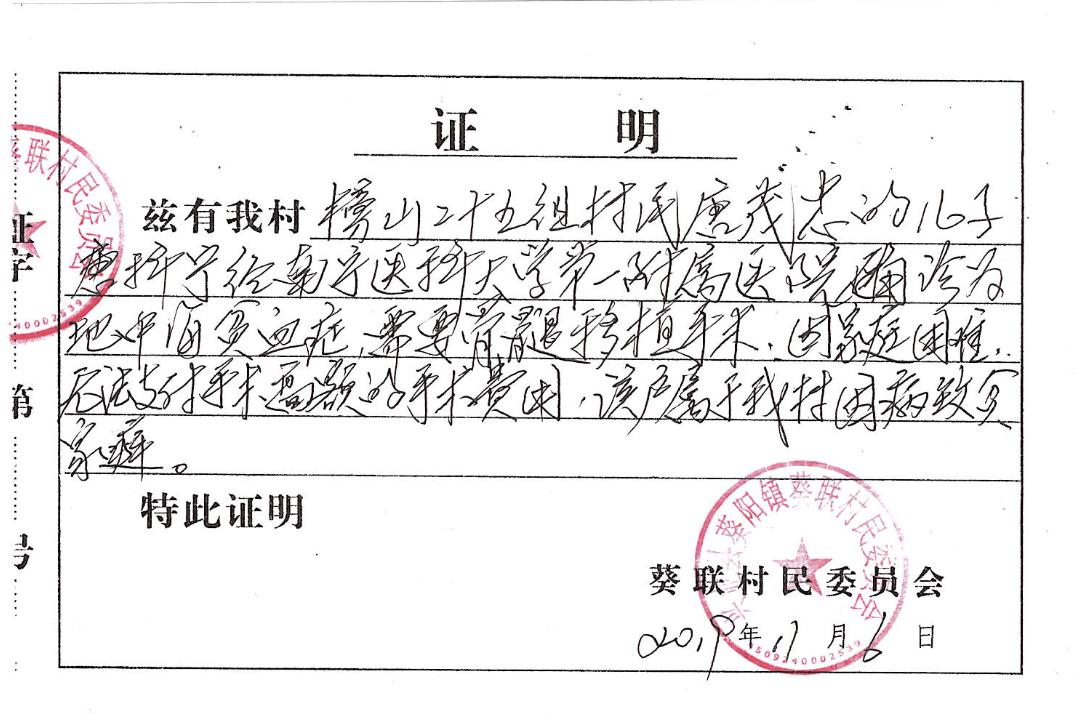 证 明
兹有我村 榜山二十五组村民唐茂忠的儿子
唐科宁经南宁医科大学第一附属医院确诊为
地中海贫血症,需要骨髓移植手术.因家庭困难,
无法支付手术高额的手术费用,该户属于我村因病致贫
家庭。
特此证明
葵联村民委员会
2019年 月6日
葵阳镇葵联村民委员会
4509240002539
葵联村民委员会
40002539
证
字
第
号